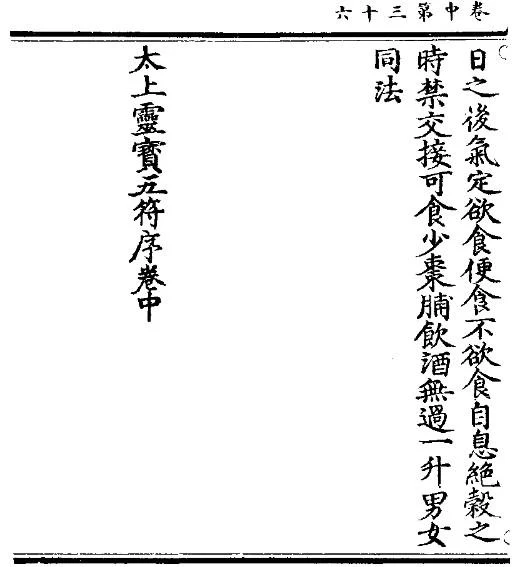 卷中第三十六
日之後氣定欲食便食不欲食自息絶穀之
時禁交接可食少棗脯飲酒無過一升男女
同法
太上靈寶五符序卷中